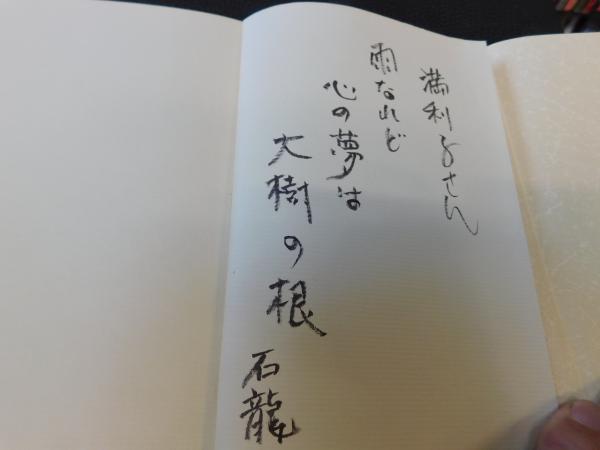 満利子さん
雨なれど
心の夢は
大樹の根
石龍